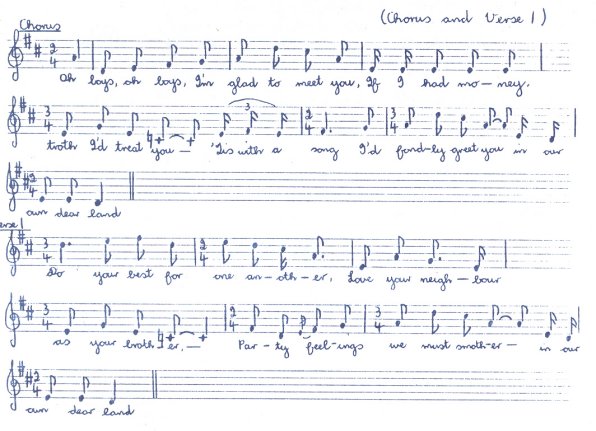 Chorus
(Chorus and Verse 1)
Oh boys, oh boys, I'm glad to meet you, If I had mo-ney.
troth I'd treat you — 'Tis with a song I'd fond-ly greet you in our
own dear land
erse 1
Do your best for one an-oth-er, Love your neigh-bour
as your broth-er, — Par-ty feel-ings we must smoth-er — in our
own dear land